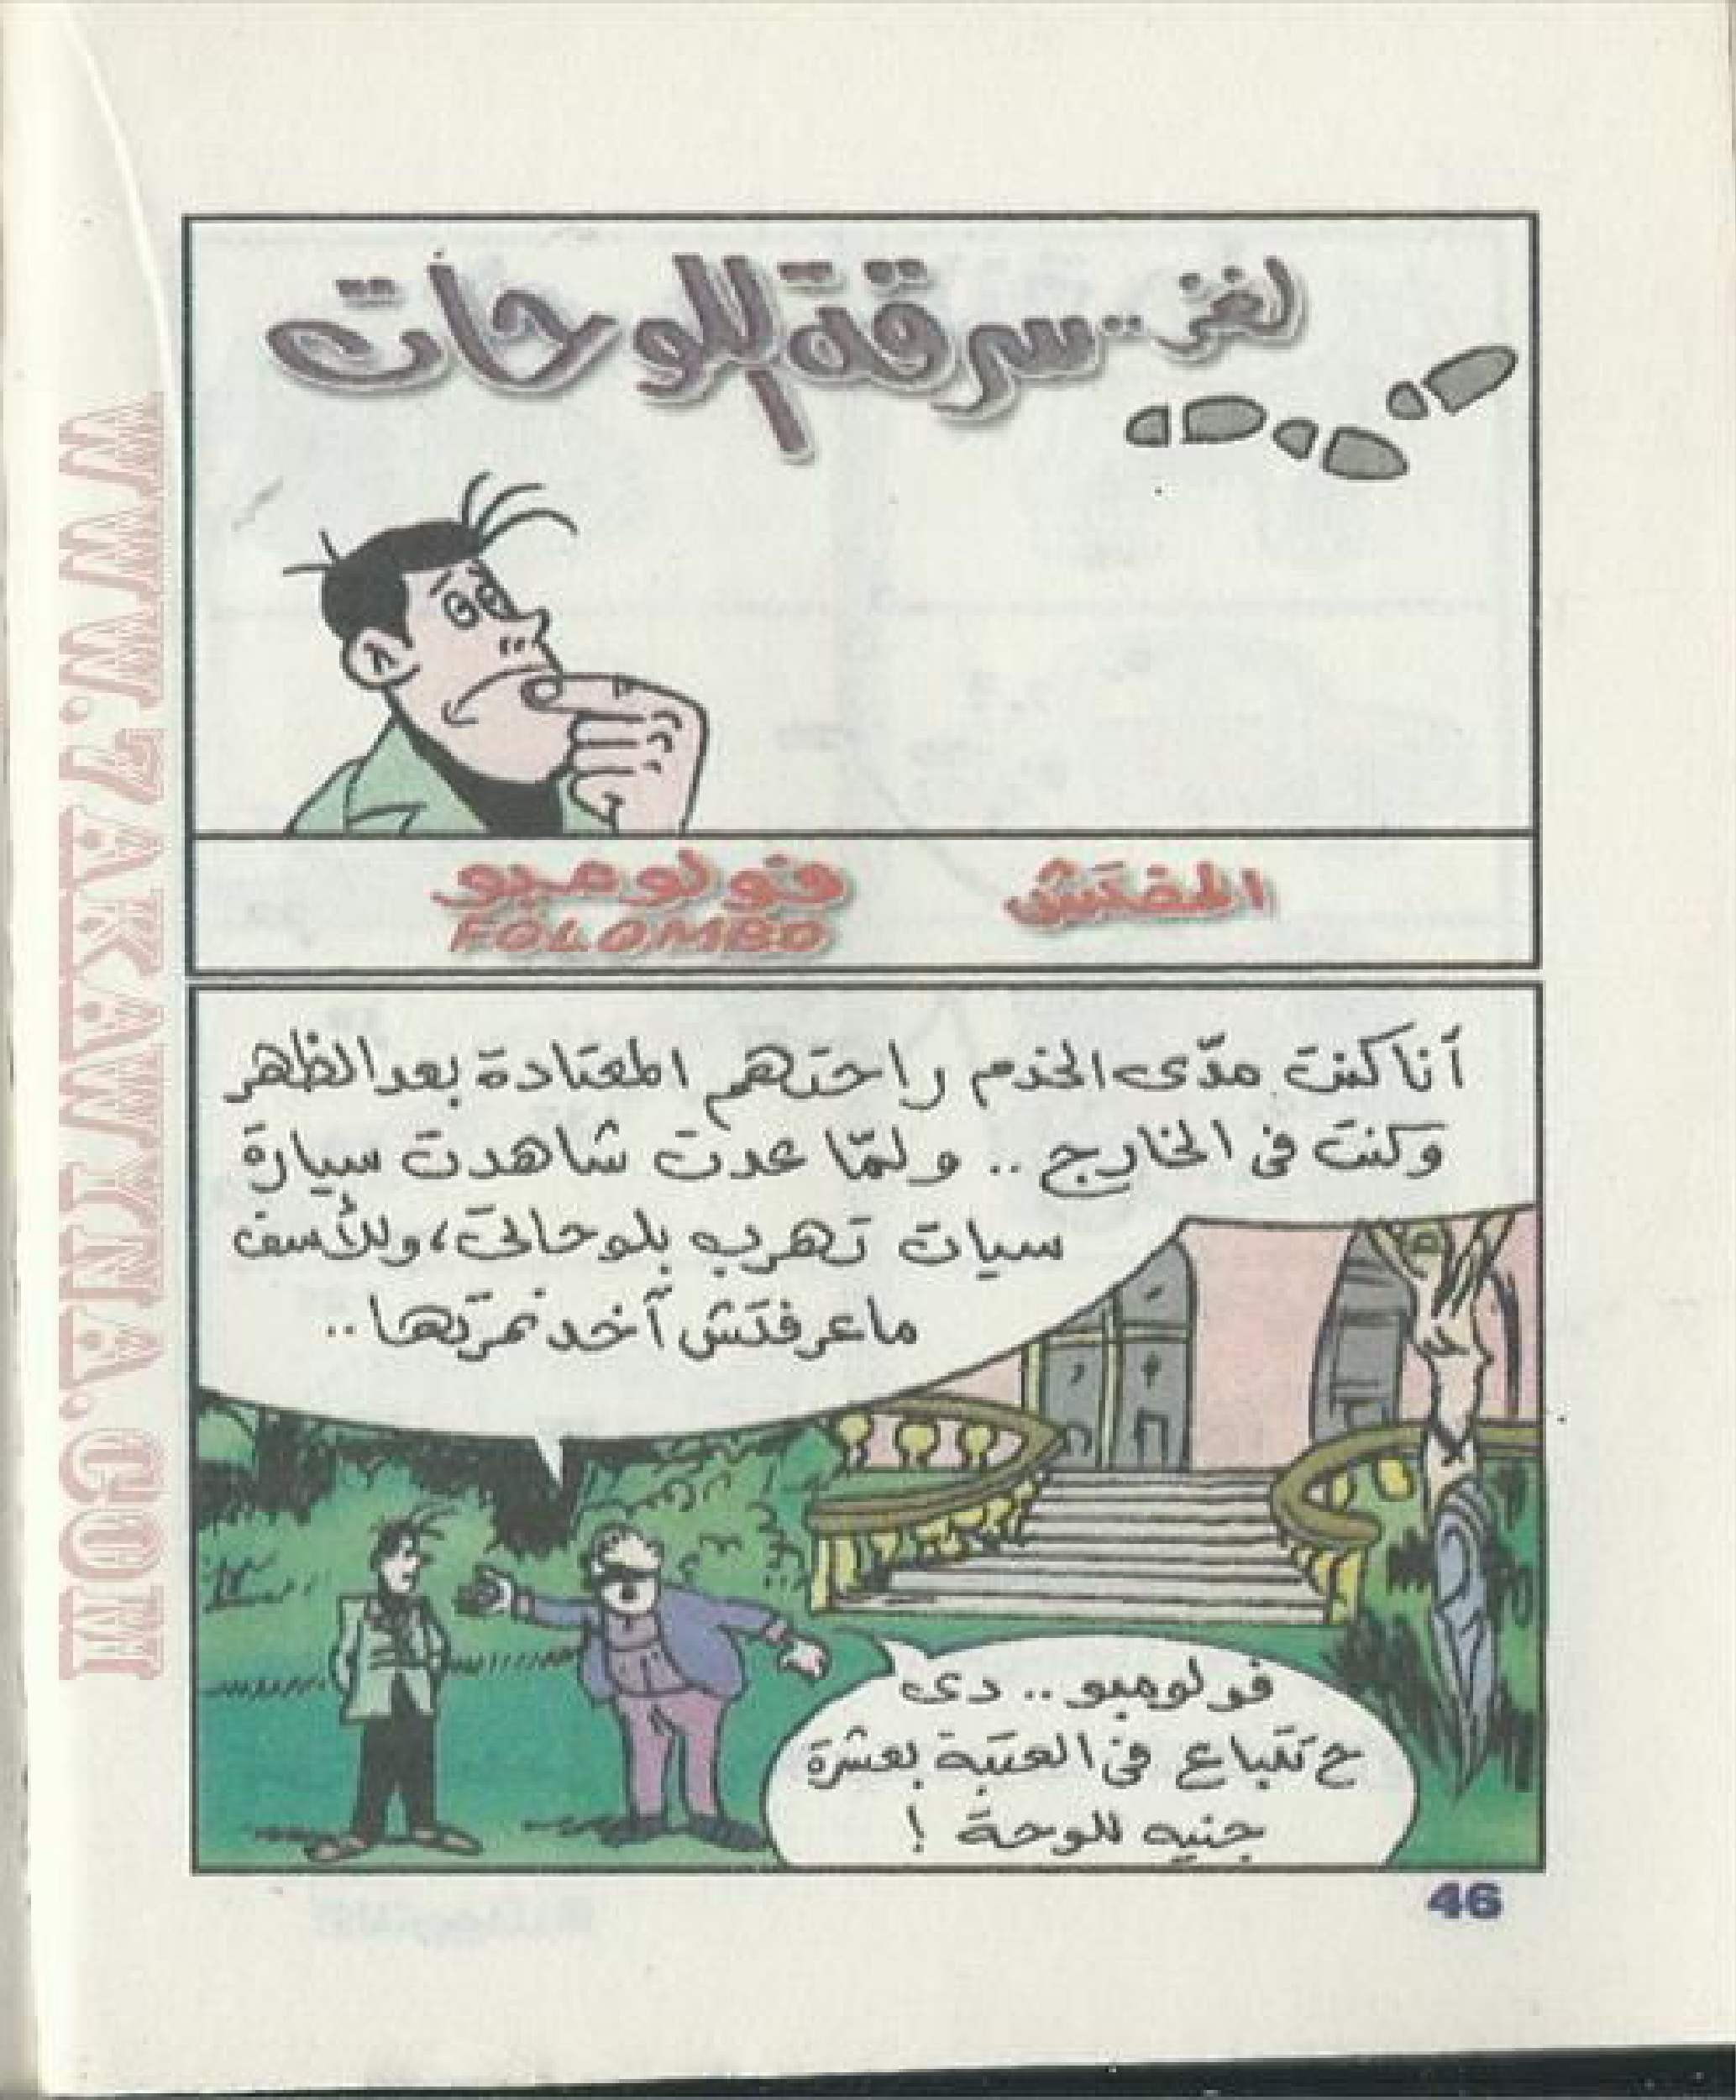 لغز.. سرقة اللوحات
المفتش
فولومبو
FOLOMBO
أنا كنت مدّى الخدم راحتهم المعتادة بعد الظهر
وكنت فى الخارج .. ولمّا عدت شاهدت سيارة
سيات تهرب بلوحاتى، وللأسف
ماعرفتش آخد نمرتها ..
فولومبو .. دى
ح تتباع فى العتبة بعشرة
جنيه للوحة !
46
WWW.7AKAWITNA.COM